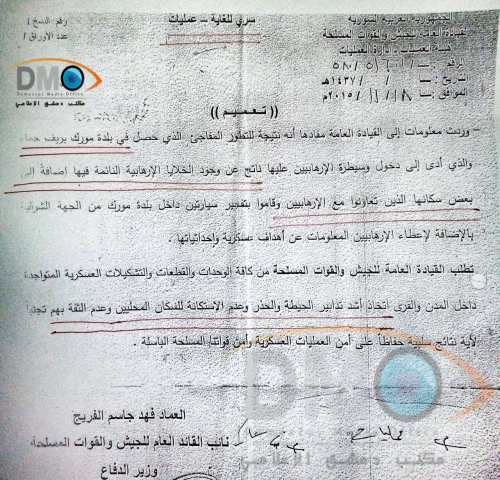 الجمهورية العربية السورية
القيادة العامة للجيش والقوات المسلحة
هيئة العمليات – إدارة العمليات
سري للغاية – عمليات
رقم النسخ /
عدد الأوراق /
DMO
Damascus Media Office
مكتب دمشق الإعلامي
الموافق: ١٨ / ١١ / ٢٠١٥م
(( تعميم ))
– وردت معلومات إلى القيادة العامة مفادها أنه نتيجة للتطور المفاجئ الذي حصل في بلدة مورك بريف حماه
والذي أدى إلى دخول وسيطرة الإرهابيين عليها ناتج عن وجود الخلايا الإرهابية النائمة فيها إضافة إلى
بعض سكانها الذين تعاونوا مع الإرهابيين وقاموا بتفجير سيارتين داخل بلدة مورك من الجهة الشرقية
بالإضافة لإعطاء الإرهابيين المعلومات عن أهداف عسكرية وإحداثياتها .
تطلب القيادة العامة للجيش والقوات المسلحة من كافة الوحدات والقطعات والتشكيلات العسكرية المتواجدة
داخل المدن والقرى اتخاذ أشد تدابير الحيطة والحذر وعدم الاستكانة للسكان المحليين وعدم الثقة بهم تجنباً
لأية نتائج سلبية حفاظاً على أمن العمليات العسكرية وأمن قواتنا المسلحة الباسلة .
العماد فهد جاسم الفريج
نائب القائد العام للجيش والقوات المسلحة
وزير الدفاع
DMO
مكتب دمشق الإعلامي